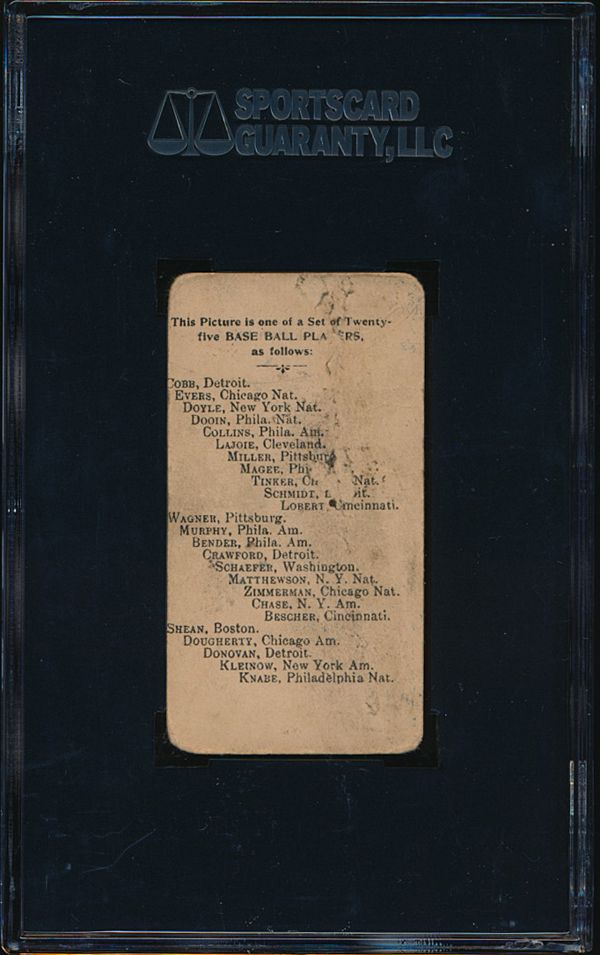 SPORTSCARD
GUARANTY, LLC
This Picture is one of a Set of Twenty-
five BASE BALL
as follows:
COBB, Detroit.
EVERS, Chicago Nat.
DOYLE, New York Nat.
DOOIN, Phila. Nat.
COLLINS, Phila. Am.
LAJOIE, Cleveland.
MILLER, Pittsburg
MAGEE,
TINKER, Nat.
SCHMIDT,
LOBERT, Cincinnati.
WAGNER, Pittsburg.
MURPHY, Phila. Am.
BENDER, Phila. Am.
CRAWFORD, Detroit.
SCHAEFER, Washington.
MATTHEWSON, N. Y. Nat.
ZIMMERMAN, Chicago Nat.
CHASE, N. Y. Am.
BESCHER, Cincinnati.
SHEAN, Boston.
DOUGHERTY, Chicago Am.
DONOVAN, Detroit.
KLEINOW, New York Am.
KNABE, Philadelphia Nat.